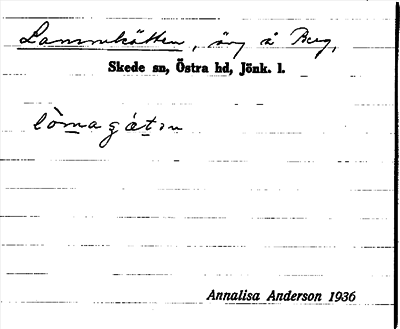 Lammkätten, äng å Berg,
Skede sn, Östra hd, Jönk. l.
lòmagátən
Annalisa Anderson 1936